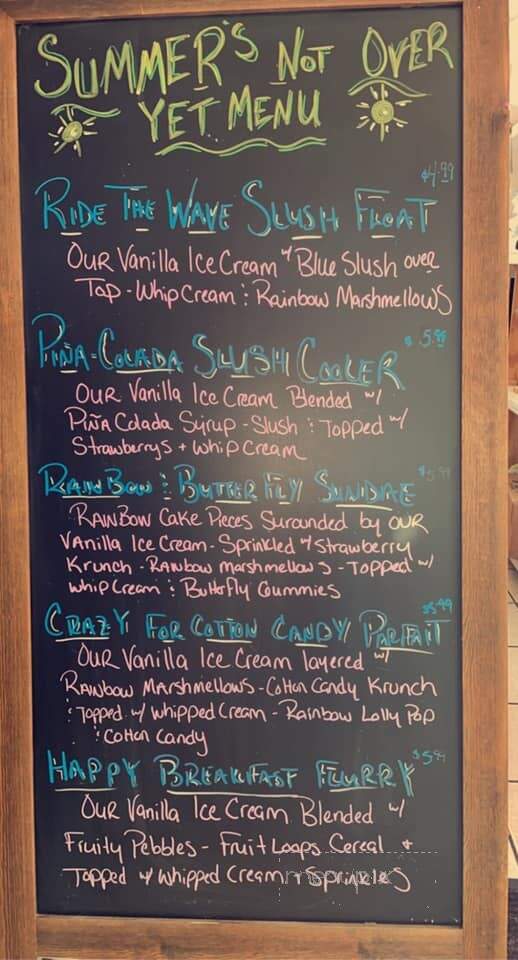 SUMMER'S NOT OVER
YET MENU
$4.99
RIDE THE WAVE SLUSH FLOAT
OUR Vanilla Ice Cream w/ Blue Slush over
Top - Whip Cream : Rainbow Marshmellows
$5.99
PIÑA-COLADA SLUSH COOLER
OUR Vanilla Ice Cream Blended w/
Piña Colada Syrup - Slush : Topped w/
Strawberrys + Whip Cream
$5.99
RAINBOW : BUTTERFLY SUNDAE
RAINBOW Cake Pieces Surounded by OUR
Vanilla Ice Cream - Sprinkled w/ Strawberry
Krunch - Rainbow marshmellows - Topped w/
Whip Cream : Butterfly Gummies
$5.99
CRAZY FOR COTTON CANDY PARFAIT
OUR Vanilla Ice Cream layered w/
Rainbow Marshmellows - Cotton Candy Krunch
: Topped w/ Whipped Cream - Rainbow Lolly Pop
: Cotton Candy
$5.99
HAPPY BREAKFAST FLURRY
OUR Vanilla Ice Cream Blended w/
Fruity Pebbles - Fruit Loops Cereal +
Topped w/ Whipped Cream + Sprinkles